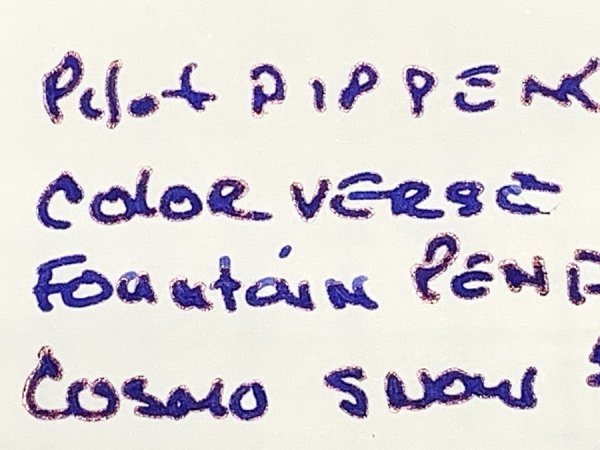 Pilot DIPPEN
COLOR VERSE
Fountain PEND
Cosmo Snow S